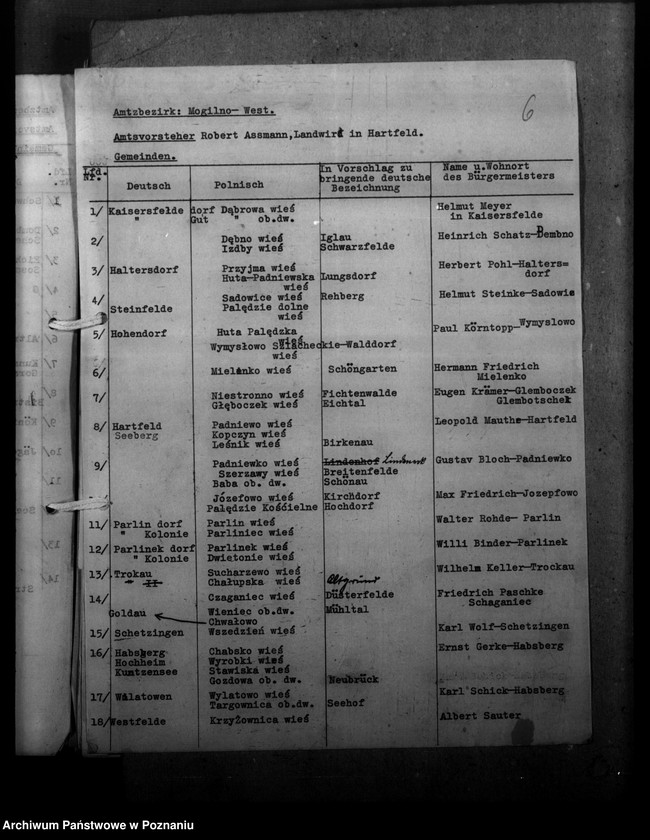 6
Amtzbezirk: Mogilno- West.
Amtsvorsteher Robert Assmann,Landwirt in Hartfeld.
Gemeinden.
Lfd. Nr. Deutsch Polnisch In Vorschlag zu bringende deutsche Bezeichnung Name u.Wohnort des Bürgermeisters
1/ Kaisersfelde dorf Dąbrowa wieś Helmut Meyer
" Gut " ob.dw. in Kaisersfelde
2/ Dębno wieś Iglau Heinrich Schatz-Dembno
Izdby wieś Schwarzfelde
3/ Haltersdorf Przyjma wieś Herbert Pohl-Halters=
Huta-Padniewska Lungsdorf dorf
wieś
4/ Sadowice wieś Rehberg Helmut Steinke-Sadowie
Steinfelde Palędzie dolne
wieś
5/ Hohendorf Huta Palędzka Paul Körntopp-Wymyslowo
wieś
Wymysłowo Szlacheckie-Walddorf
wieś
6/ Mielenko wieś Schöngarten Hermann Friedrich
Mielenko
7/ Niestronno wieś Fichtenwalde Eugen Krämer-Glemboczek
Głęboczek wieś Eichtal Glembotschek
8/ Hartfeld Padniewo wieś Leopold Mauthe-Hartfeld
Seeberg Kopczyn wieś
Leśnik wieś Birkenau
9/ Padniewko wieś Lindenhof Gustav Bloch-Padniewko
Szerzawy wieś Breitenfelde
Baba ob. dw. Schönau
Józefowo wieś Kirchdorf Max Friedrich-Jozepfowo
Palędzie Kośćielne Hochdorf
11/ Parlin dorf Parlin wieś Walter Rohde- Parlin
" Kolonie Parliniec wieś
12/ Parlinek dorf Parlinek wieś Willi Binder-Parlinek
" Kolonie Dwietonie wieś
13/ Trokau Sucharzewo wieś Wilhelm Keller-Trockau
" II Chałupska wieś Altgrund
14/ Czaganiec wieś Düsterfelde Friedrich Paschke
Schaganiec
Goldau Wieniec ob.dw. Mühltal
Chwałowo
15/ Schetzingen Wszedzień wieś Karl Wolf-Schetzingen
16/ Habsberg Chabsko wieś Ernst Gerke-Habsberg
Hochheim Wyrobki wieś
Kuntzensee Stawiska wieś
Gozdowa ob. dw. Neubrück
17/ Wilatowen Wylatowo wieś Karl Schick-Habsberg
Targownica ob.dw. Seehof
18/ Westfelde Krzyżownica wieś Albert Sauter
Archiwum Państwowe w Poznaniu